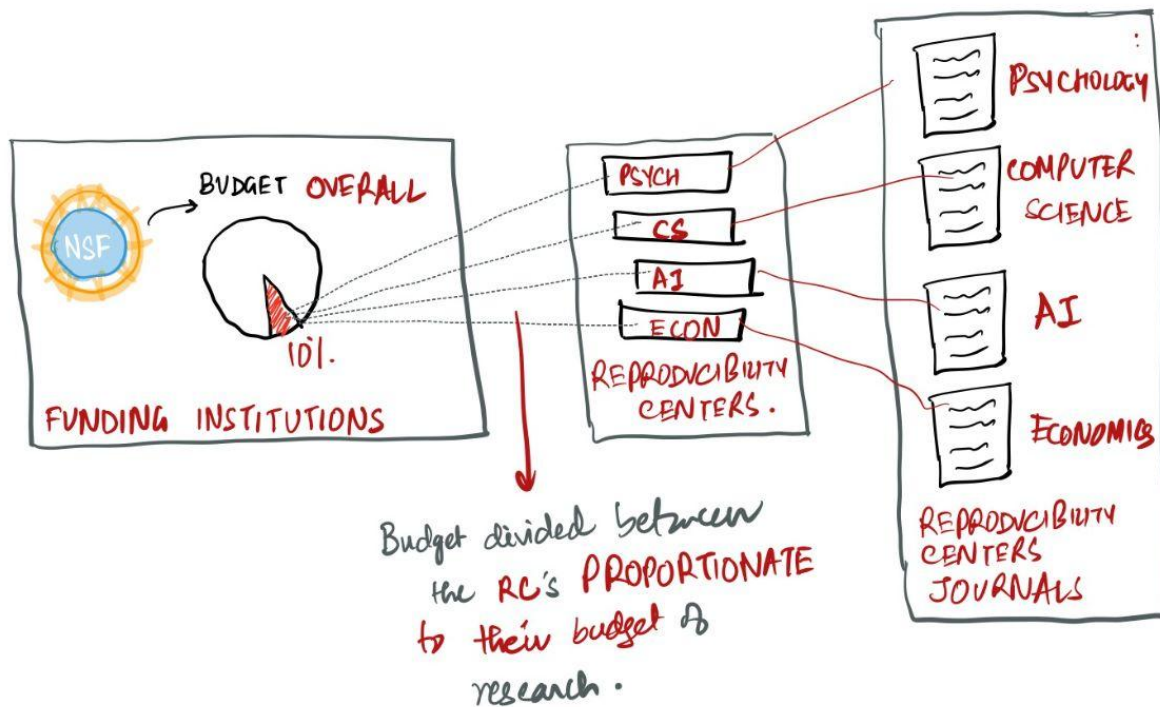 NSF
BUDGET OVERALL
10%.
FUNDING INSTITUTIONS
PSYCH
CS
AI
ECON
REPRODUCIBILITY
CENTERS.
PSYCHOLOGY
COMPUTER
SCIENCE
AI
ECONOMICS
REPRODUCIBILITY
CENTERS
JOURNALS
Budget divided between
the RC's PROPORTIONATE
to their budget of
research.